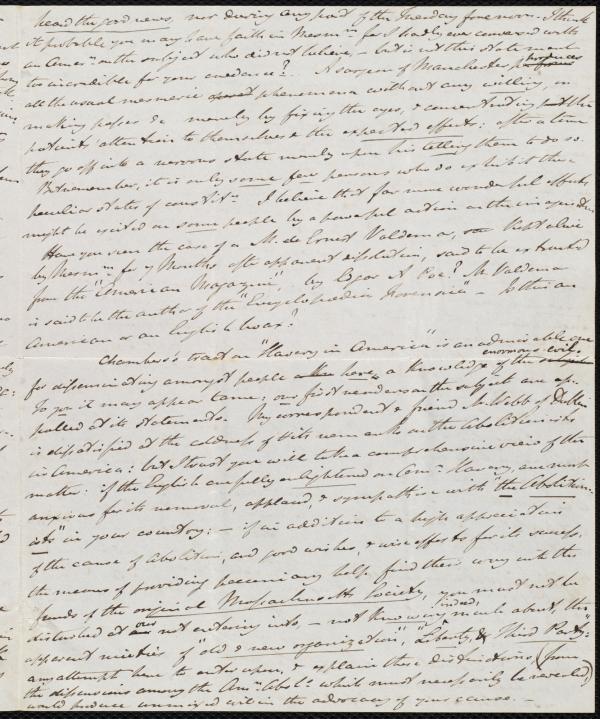 heard the good news, nor during any part of the Tuesday forenoon. I think
it probable you may have faith in Mesmm for I hardly ever conversed with
an Amern on the subject who did not believe, — but is not this statement
too incredible for your credence? A surgeon of Manchester produces
all the usual mesmeric phenomena without any willing, or
making passes &c merely by fixing the eyes, & concentrating the
patients attention to themselves & the expected effects: after a time
they go off into a nervous state merely upon his telling them to do so.
But remember, it is only some few persons who do exhibit these
peculiar states of constitn. I believe that far more wonderful effects
might be excited on some people by a powerful action on the imagination
Have you seen the case of a M. de Ernest Valdema, Kept alive
by Mesmm for 7 Months after apparent dissolution, said to be extracted
from the "American Magazine", by Edgar A Poe? M. Valdema
is said to be the author of the "Encyclopedia Forensica" — Is this an
American or an English hoax?
Chambers's tract on "Slavery in America" is an admirable one
for disseminating amongst people here, a Knowledge of the enormous evil.
To you it may appear tame; our first readers on the subject are ap-
palled at its statements. My correspondent & friend Mr Webb of Dublin
is dissatisfied at the address of its remarks on the Abolitionists
in America: but I trust you will take a comprehensive view of the
matter. if the English are fully enlightened on Amn Slavery, are most
anxious for its removal, applaud, & sympathise with "the Abolition-
ists" in your country; — if in addition to a high appreciation
of the cause of Abolition, and good wishes, & wise efforts for its success,
the means of providing pecuniary help find their way into the
funds of the original Massachusetts Society, you must not be
disturbed at our not entering into, — not knowing indeed, much about, the
apparent niceties of old & new organization", "Liberty, & Third Party":
any attempt here to enter upon, & explain these distinctions (from
the discussions among the Amn Abolts which must necessarily be revealed)
would produce unmixed evil in the advocacy of your cause. —